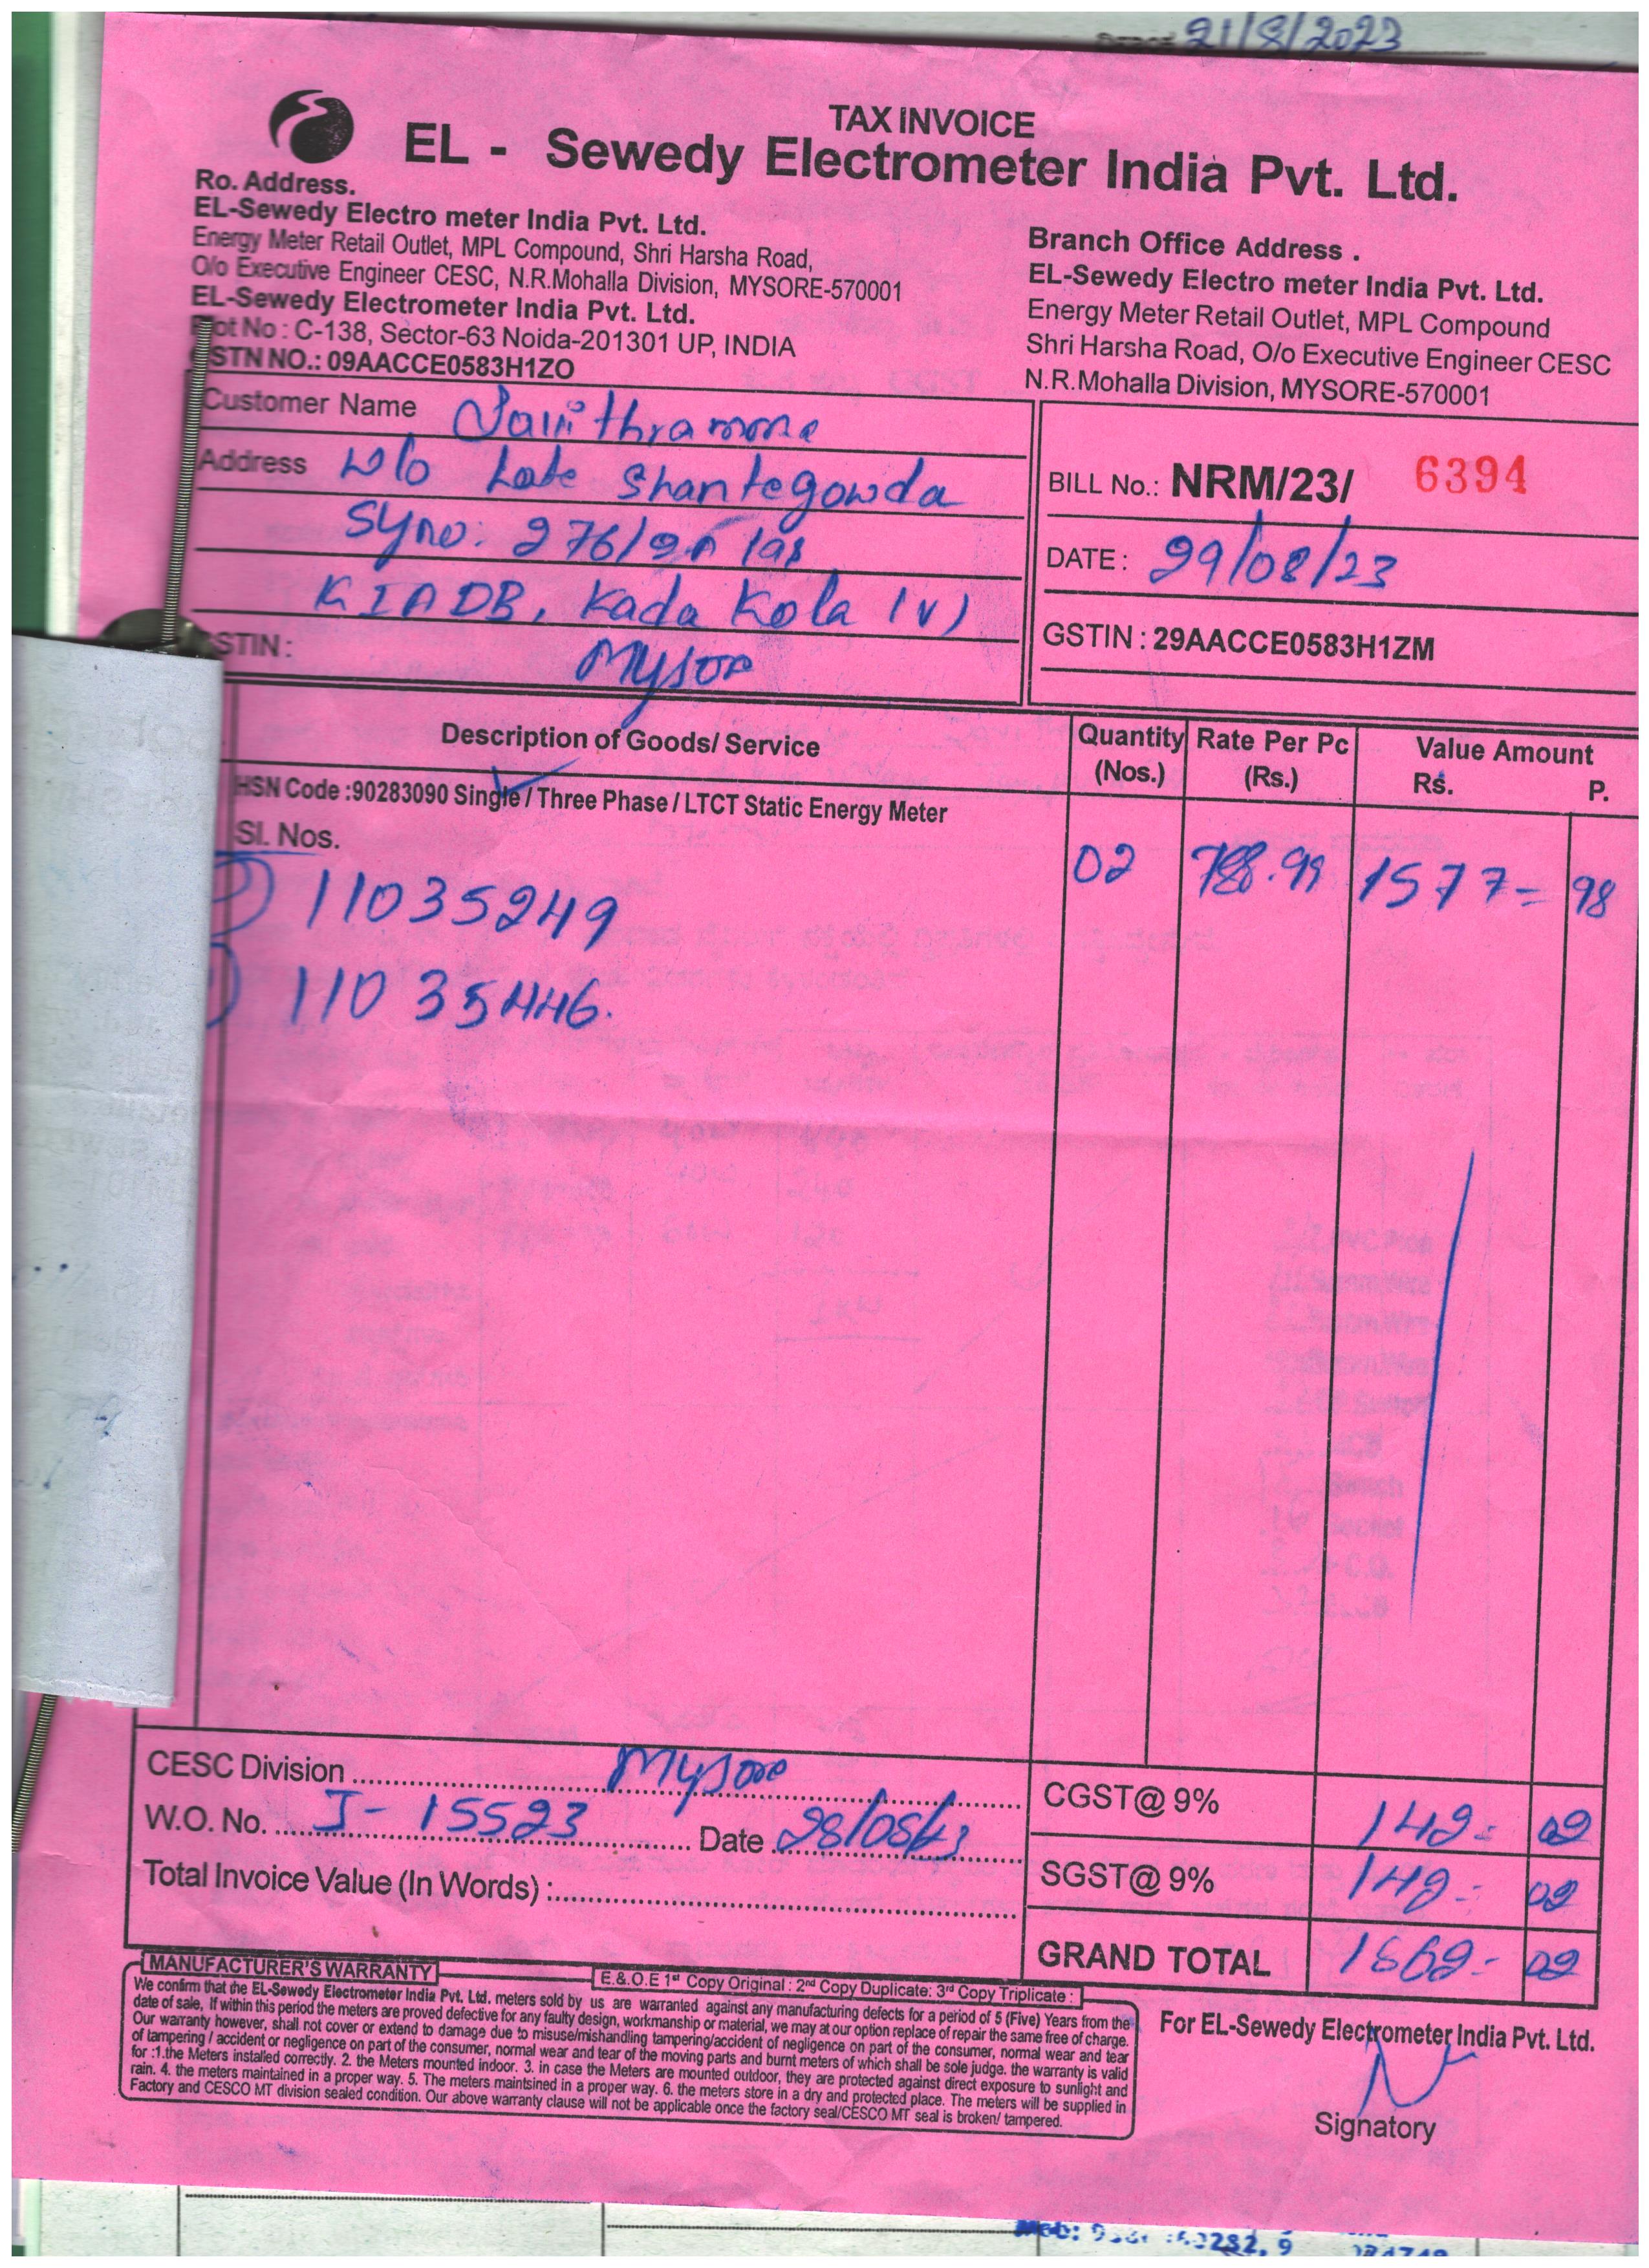 21/8/2023
TAX INVOICE
EL - Sewedy Electrometer India Pvt. Ltd.
Ro. Address.
EL-Sewedy Electro meter India Pvt. Ltd.
Energy Meter Retail Outlet, MPL Compound, Shri Harsha Road,
O/o Executive Engineer CESC, N.R.Mohalla Division, MYSORE-570001
EL-Sewedy Electrometer India Pvt. Ltd.
ot No : C-138, Sector-63 Noida-201301 UP, INDIA
STN NO.: 09AACCE0583H1ZO
Branch Office Address .
EL-Sewedy Electro meter India Pvt. Ltd.
Energy Meter Retail Outlet, MPL Compound
Shri Harsha Road, O/o Executive Engineer CESC
N.R.Mohalla Division, MYSORE-570001
Customer Name
Address W/o Late Shantegowda
Syno: 276/
KIADB, Kada Kola (V)
STIN : Mysore
BILL No.: NRM/23/ 6394
DATE : 29/08/23
GSTIN : 29AACCE0583H1ZM
Description of Goods/ Service Quantity (Nos.) Rate Per Pc (Rs.) Value Amount Rs. P.
HSN Code :90283090 Single / Three Phase / LTCT Static Energy Meter
Sl. Nos.
11035249 02 788.99 1577= 98
11035446.
CESC Division Mysore
W.O. No. J-15523 Date 28/08/23
Total Invoice Value (In Words) :
CGST@ 9% 142= 02
SGST@ 9% 142= 02
GRAND TOTAL 1862= 02
MANUFACTURER'S WARRANTY
E.&.O.E 1st Copy Original : 2nd Copy Duplicate: 3rd Copy Triplicate :
We confirm that the EL-Sewedy Electrometer India Pvt. Ltd. meters sold by us are warranted against any manufacturing defects for a period of 5 (Five) Years from the
date of sale, If within this period the meters are proved defective for any faulty design, workmanship or material, we may at our option replace of repair the same free of charge.
Our warranty however, shall not cover or extend to damage due to misuse/mishandling tampering/accident of negligence on part of the consumer, normal wear and tear
of tampering / accident or negligence on part of the consumer, normal wear and tear of the moving parts and burnt meters of which shall be sole judge. the warranty is valid
for :1.the Meters installed correctly. 2. the Meters mounted indoor. 3. in case the Meters are mounted outdoor, they are protected against direct exposure to sunlight and
rain. 4. the meters maintained in a proper way. 5. The meters maintsined in a proper way. 6. the meters store in a dry and protected place. The meters will be supplied in
Factory and CESCO MT division sealed condition. Our above warranty clause will not be applicable once the factory seal/CESCO MT seal is broken/ tampered.
For EL-Sewedy Electrometer India Pvt. Ltd.
Signatory